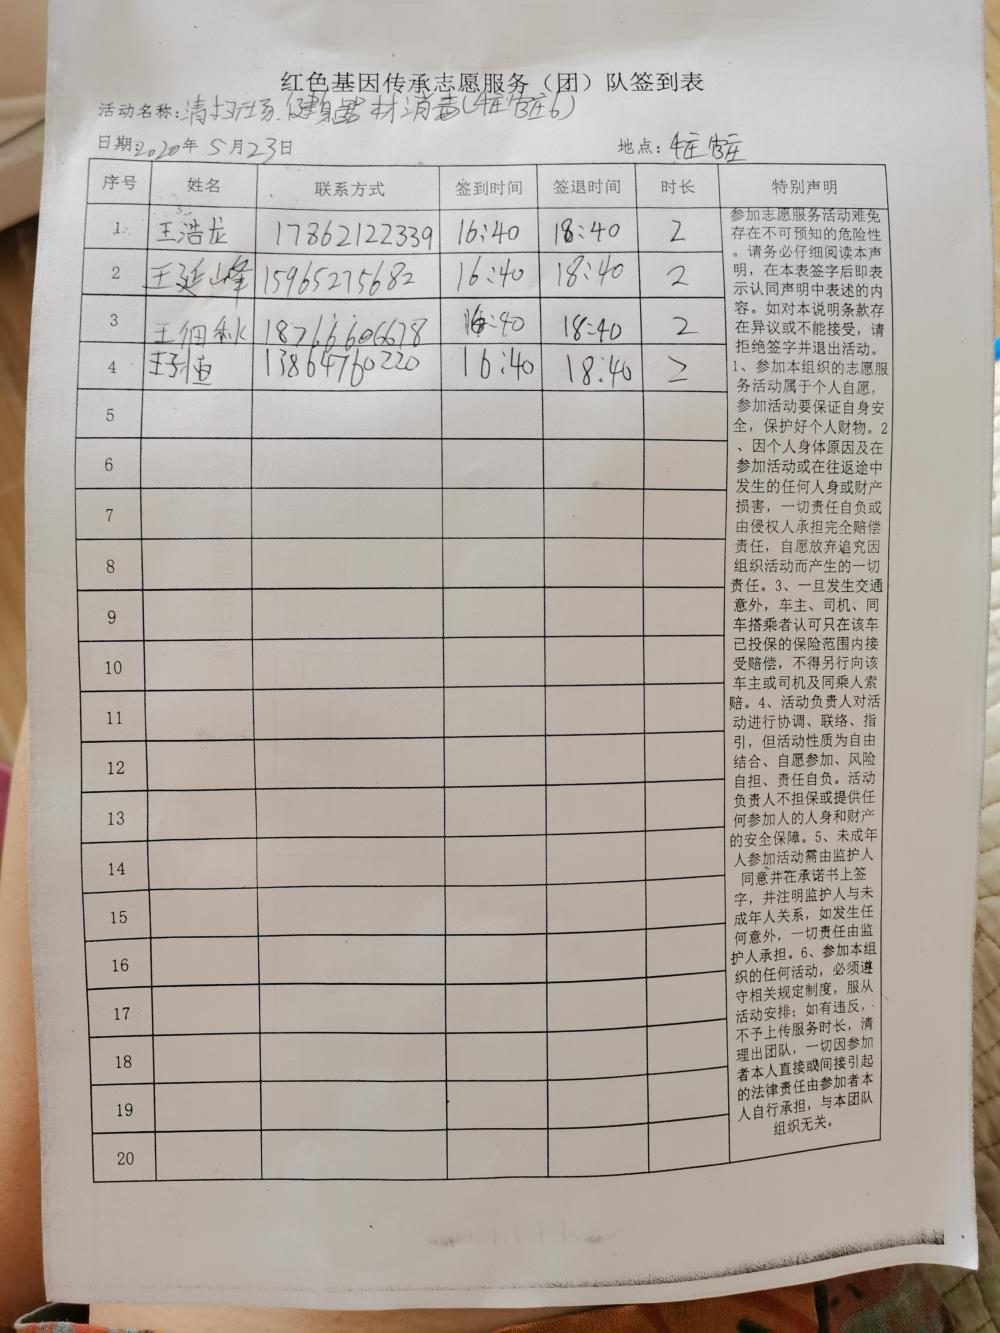 红色基因传承志愿服务（团）队签到表
活动名称:清扫广场.健身器材消毒(
日期:2020年5月23日 地点:
序号 姓名 联系方式 签到时间 签退时间 时长 特别声明
1 王浩龙 17862122339 16:40 18:40 2
2 王延峰 15965275682 16:40 18:40 2
3 王佃秋 18766606678 16:40 18:40 2
4 王子恒 13864760220 16:40 18:40 2
5
6
7
8
9
10
11
12
13
14
15
16
17
18
19
20
参加志愿服务活动难免
存在不可预知的危险性
。请务必仔细阅读本声
明，在本表签字后即表
示认同声明中表述的内
容。如对本说明条款存
在异议或不能接受，请
拒绝签字并退出活动。
1、参加本组织的志愿服
务活动属于个人自愿，
参加活动要保证自身安
全，保护好个人财物。2
、因个人身体原因及在
参加活动或在往返途中
发生的任何人身或财产
损害，一切责任自负或
由侵权人承担完全赔偿
责任，自愿放弃追究因
组织活动而产生的一切
责任。3、一旦发生交通
意外，车主、司机、同
车搭乘者认可只在该车
已投保的保险范围内接
受赔偿，不得另行向该
车主或司机及同乘人索
赔。4、活动负责人对活
动进行协调、联络、指
引，但活动性质为自由
结合、自愿参加、风险
自担、责任自负。活动
负责人不担保或提供任
何参加人的人身和财产
的安全保障。5、未成年
人参加活动需由监护人
同意并在承诺书上签
字，并注明监护人与未
成年人关系，如发生任
何意外，一切责任由监
护人承担。6、参加本组
织的任何活动，必须遵
守相关规定制度，服从
活动安排；如有违反，
不予上传服务时长，清
理出团队，一切因参加
者本人直接或间接引起
的法律责任由参加者本
人自行承担，与本团队
组织无关。